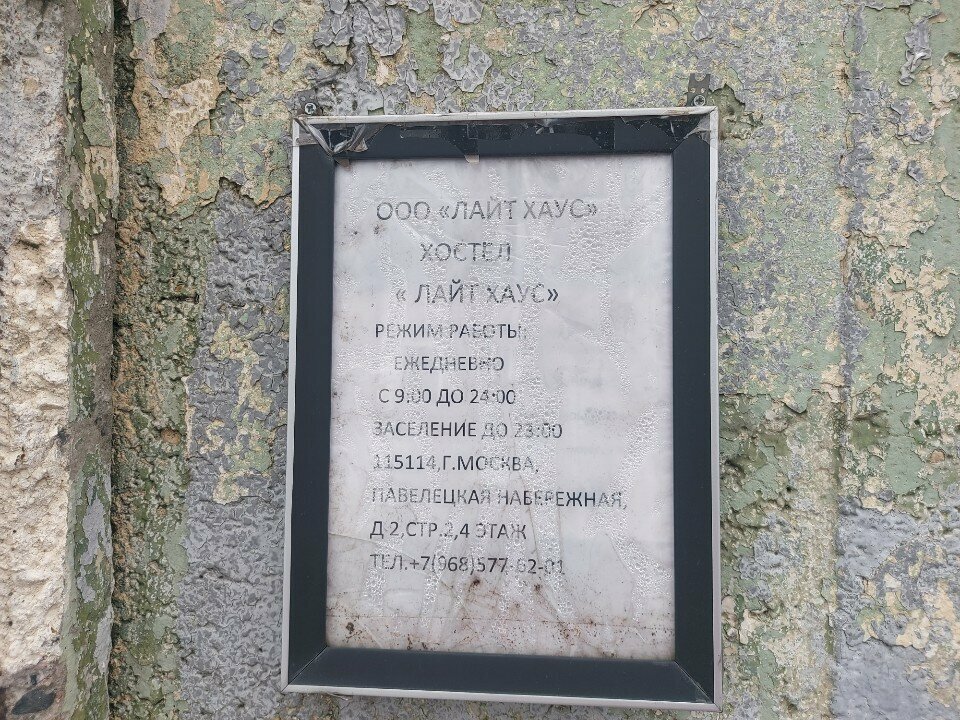 ООО «ЛАЙТ ХАУС»
ХОСТЕЛ
« ЛАЙТ ХАУС»
РЕЖИМ РАБОТЫ:
ЕЖЕДНЕВНО
С 9:00 ДО 24:00
ЗАСЕЛЕНИЕ ДО 23:00
115114,Г.МОСКВА,
ПАВЕЛЕЦКАЯ НАБЕРЕЖНАЯ,
Д 2,СТР.2,4 ЭТАЖ
ТЕЛ.+7(968)577-62-01